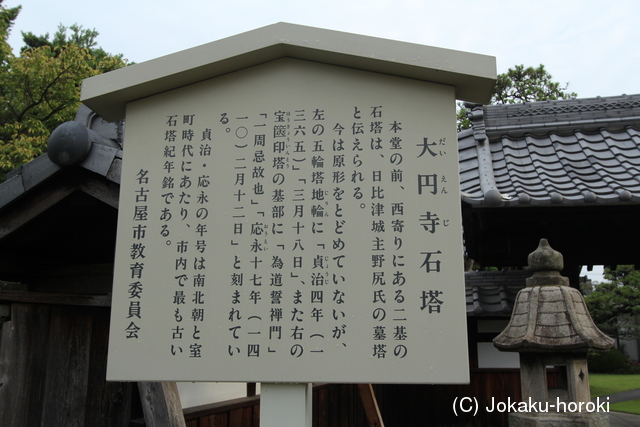 大円寺石塔
だいえんじ
本堂の前、西寄りにある二基の
石塔は、日比津城主野尻氏の墓塔
と伝えられる。
今は原形をとどめていないが、
左の五輪塔地輪に「貞治四年（一
三六五）」「三月十八日」、また右の
宝篋印塔の基部に「為道誓禅門」
「一周忌故也」「応永十七年（一四
一〇）二月十二日」と刻まれてい
る。
貞治・応永の年号は南北朝と室
町時代にあたり、市内で最も古い
石塔紀年銘である。
名古屋市教育委員会
(C) Jokaku-horoki